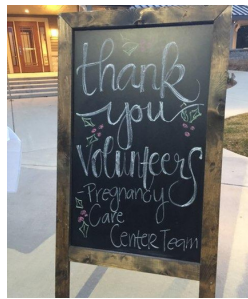 thank
you
Volunteers
-Pregnancy
Care
Center Team